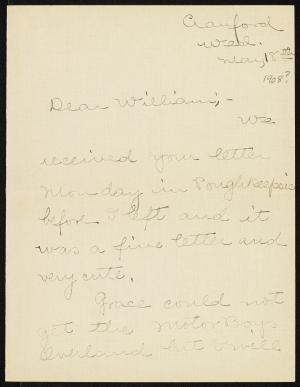 Cranford
Wed.
May 18th
1908?
Dear William;-
We
received your letter
Monday in Poughkeepsie
before I left and it
was a fine letter and
very cute.
Grace could not
get the Motor Boys
Overland but I will